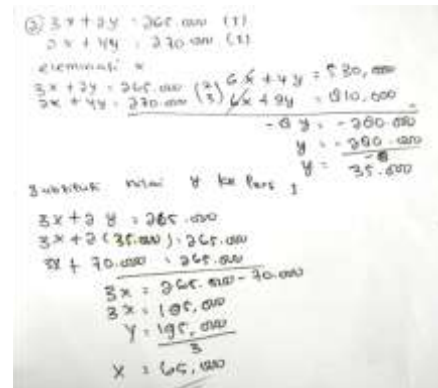 ② 3x + 2y = 265.000 (1)
2x + 4y = 270.000 (2)
eleminasi x
3x + 2y = 265.000 (2) 6x + 4y = 530,000
2x + 4y = 270.000 (3) 6x + 12y = 810,000
-8 y = -280.000
y = -280.000
-8
y = 35.000
Substitusi nilai y ke Pers 1
3x + 2 y = 265.000
3x + 2 (35.000) = 265.000
3x + 70.000 = 265.000
3x = 265.000 - 70.000
3x = 195,000
Y = 195,000
3
X = 65,000